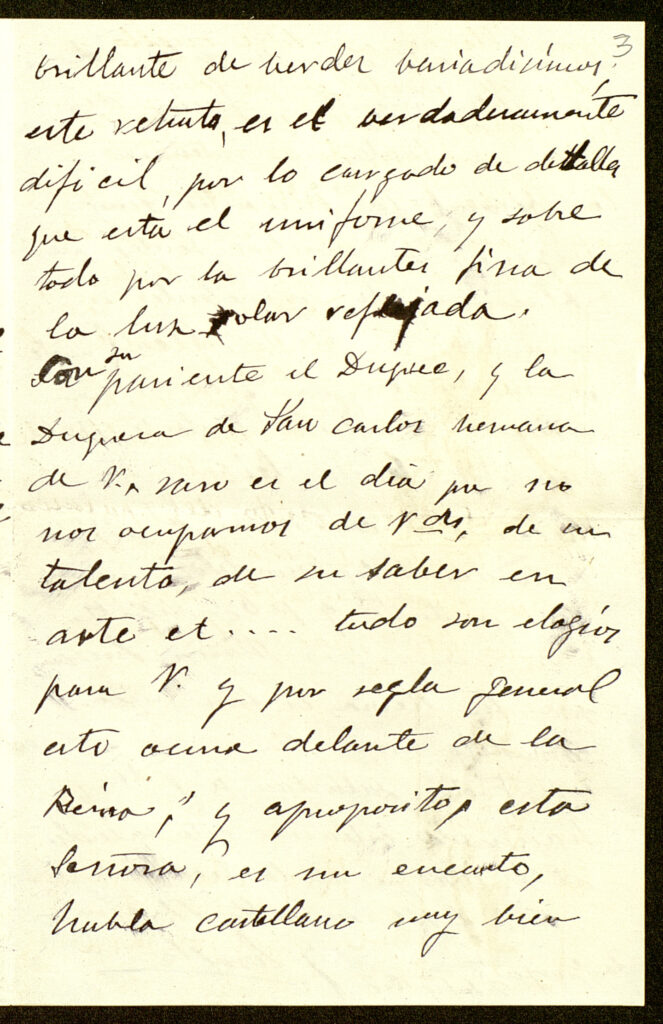 3
brillante de verdes bariadisimos,
este retrato, es el verdaderamente
dificil, por lo cargado de detalle
que esta el uniforme, y sobre
todo por la brillantes fina de
la lux solar reflejada.
Con su pariente el Duque, y la
Duquesa de San Carlos hermana
de V. raro es el dia que no
nos ocupamos de Vdes, de su
talento, de su saber en
arte et.... todo son elogios
para V. y por regla general
esto ocurre delante de la
Reina, y aproposito, esta
Señora, es un encanto,
habla castellano muy bien